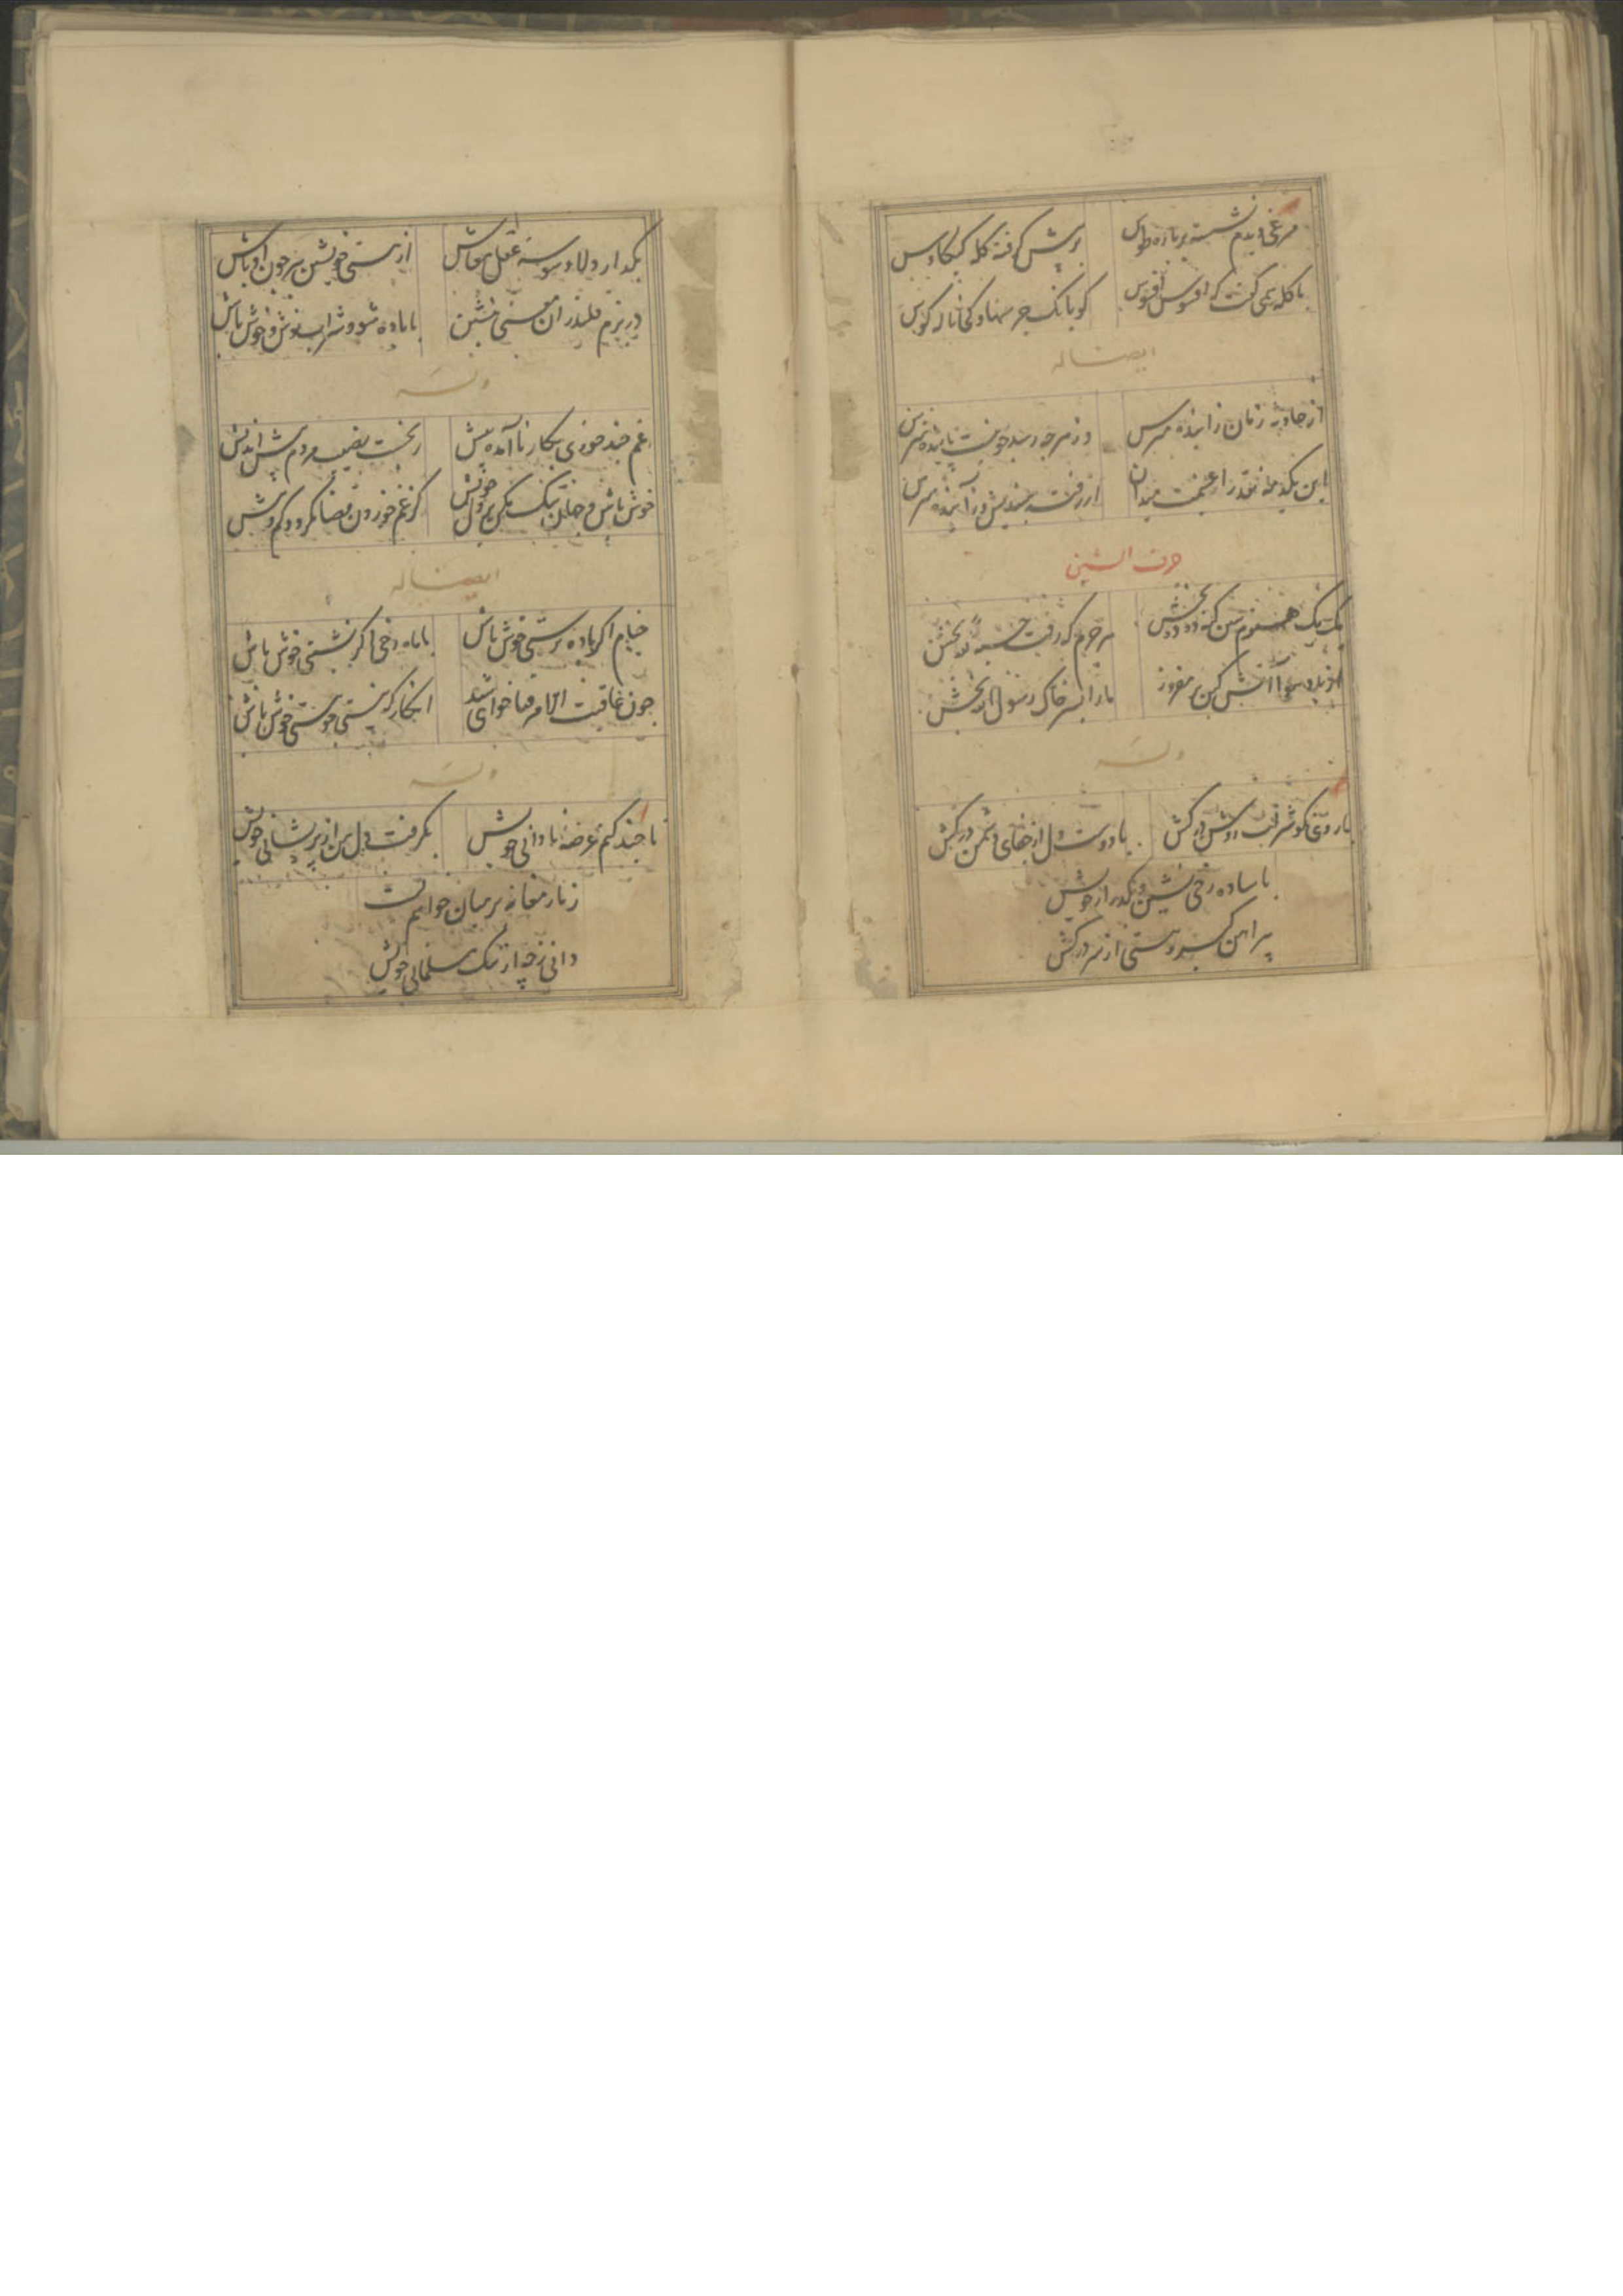 مرغی دیدم نشسته بر باره طوس
در پیش گرفته کله کیکاوس
با کله همی گفت که افسوس افسوس
کو بانک جرسها و کجا ناله کوس
ایضا له
از حادثه زمان زاینده مپرس
وز هرچه رسد چو نیست پاینده مپرس
این یکدمه نقد را غنیمت میدان
از رفته میندیش و ز آینده مپرس
حرف الشین
یک یک هنرم بین کنه ده ده بخش
هر جرم که رفت حسبة لله بخش
از باد هوا آتش کین بر مفروز
ما را بسر خاک رسول الله بخش
وله
با دوست دل از جفای دشمن درکش
با ساده رخی نشین و بگذر از خویش
پیراهن کبر و هستی از سر درکش
بگذار دلا وسوسه عقل معاش
از هستی خویشتن بپر چون اوباش
در بزم قلندران معنی بنشین
با باده شو و شراب نوش و خوش باش
وله
غم چند خوری بکار نا آمده پیش
رنجست نصیب مردم پیش اندیش
خوش باش و جهان تنک مکن بر دل خویش
کز غم خوردن قضا نکردد کم و بیش
ایضا له
خیام اگر باده پرستی خوش باش
با ماه رخی اکر نشستی خوش باش
چون عاقبت الامر فنا خواهی شد
انکار که نیستی چو هستی خوش باش
وله
تا چند کنم عرضه نادانی خویش
بکرفت دل من از پریشانی خویش
زنار مغانه بر میان خواهم بست
دانی ز چه از ننک مسلمانی خویش